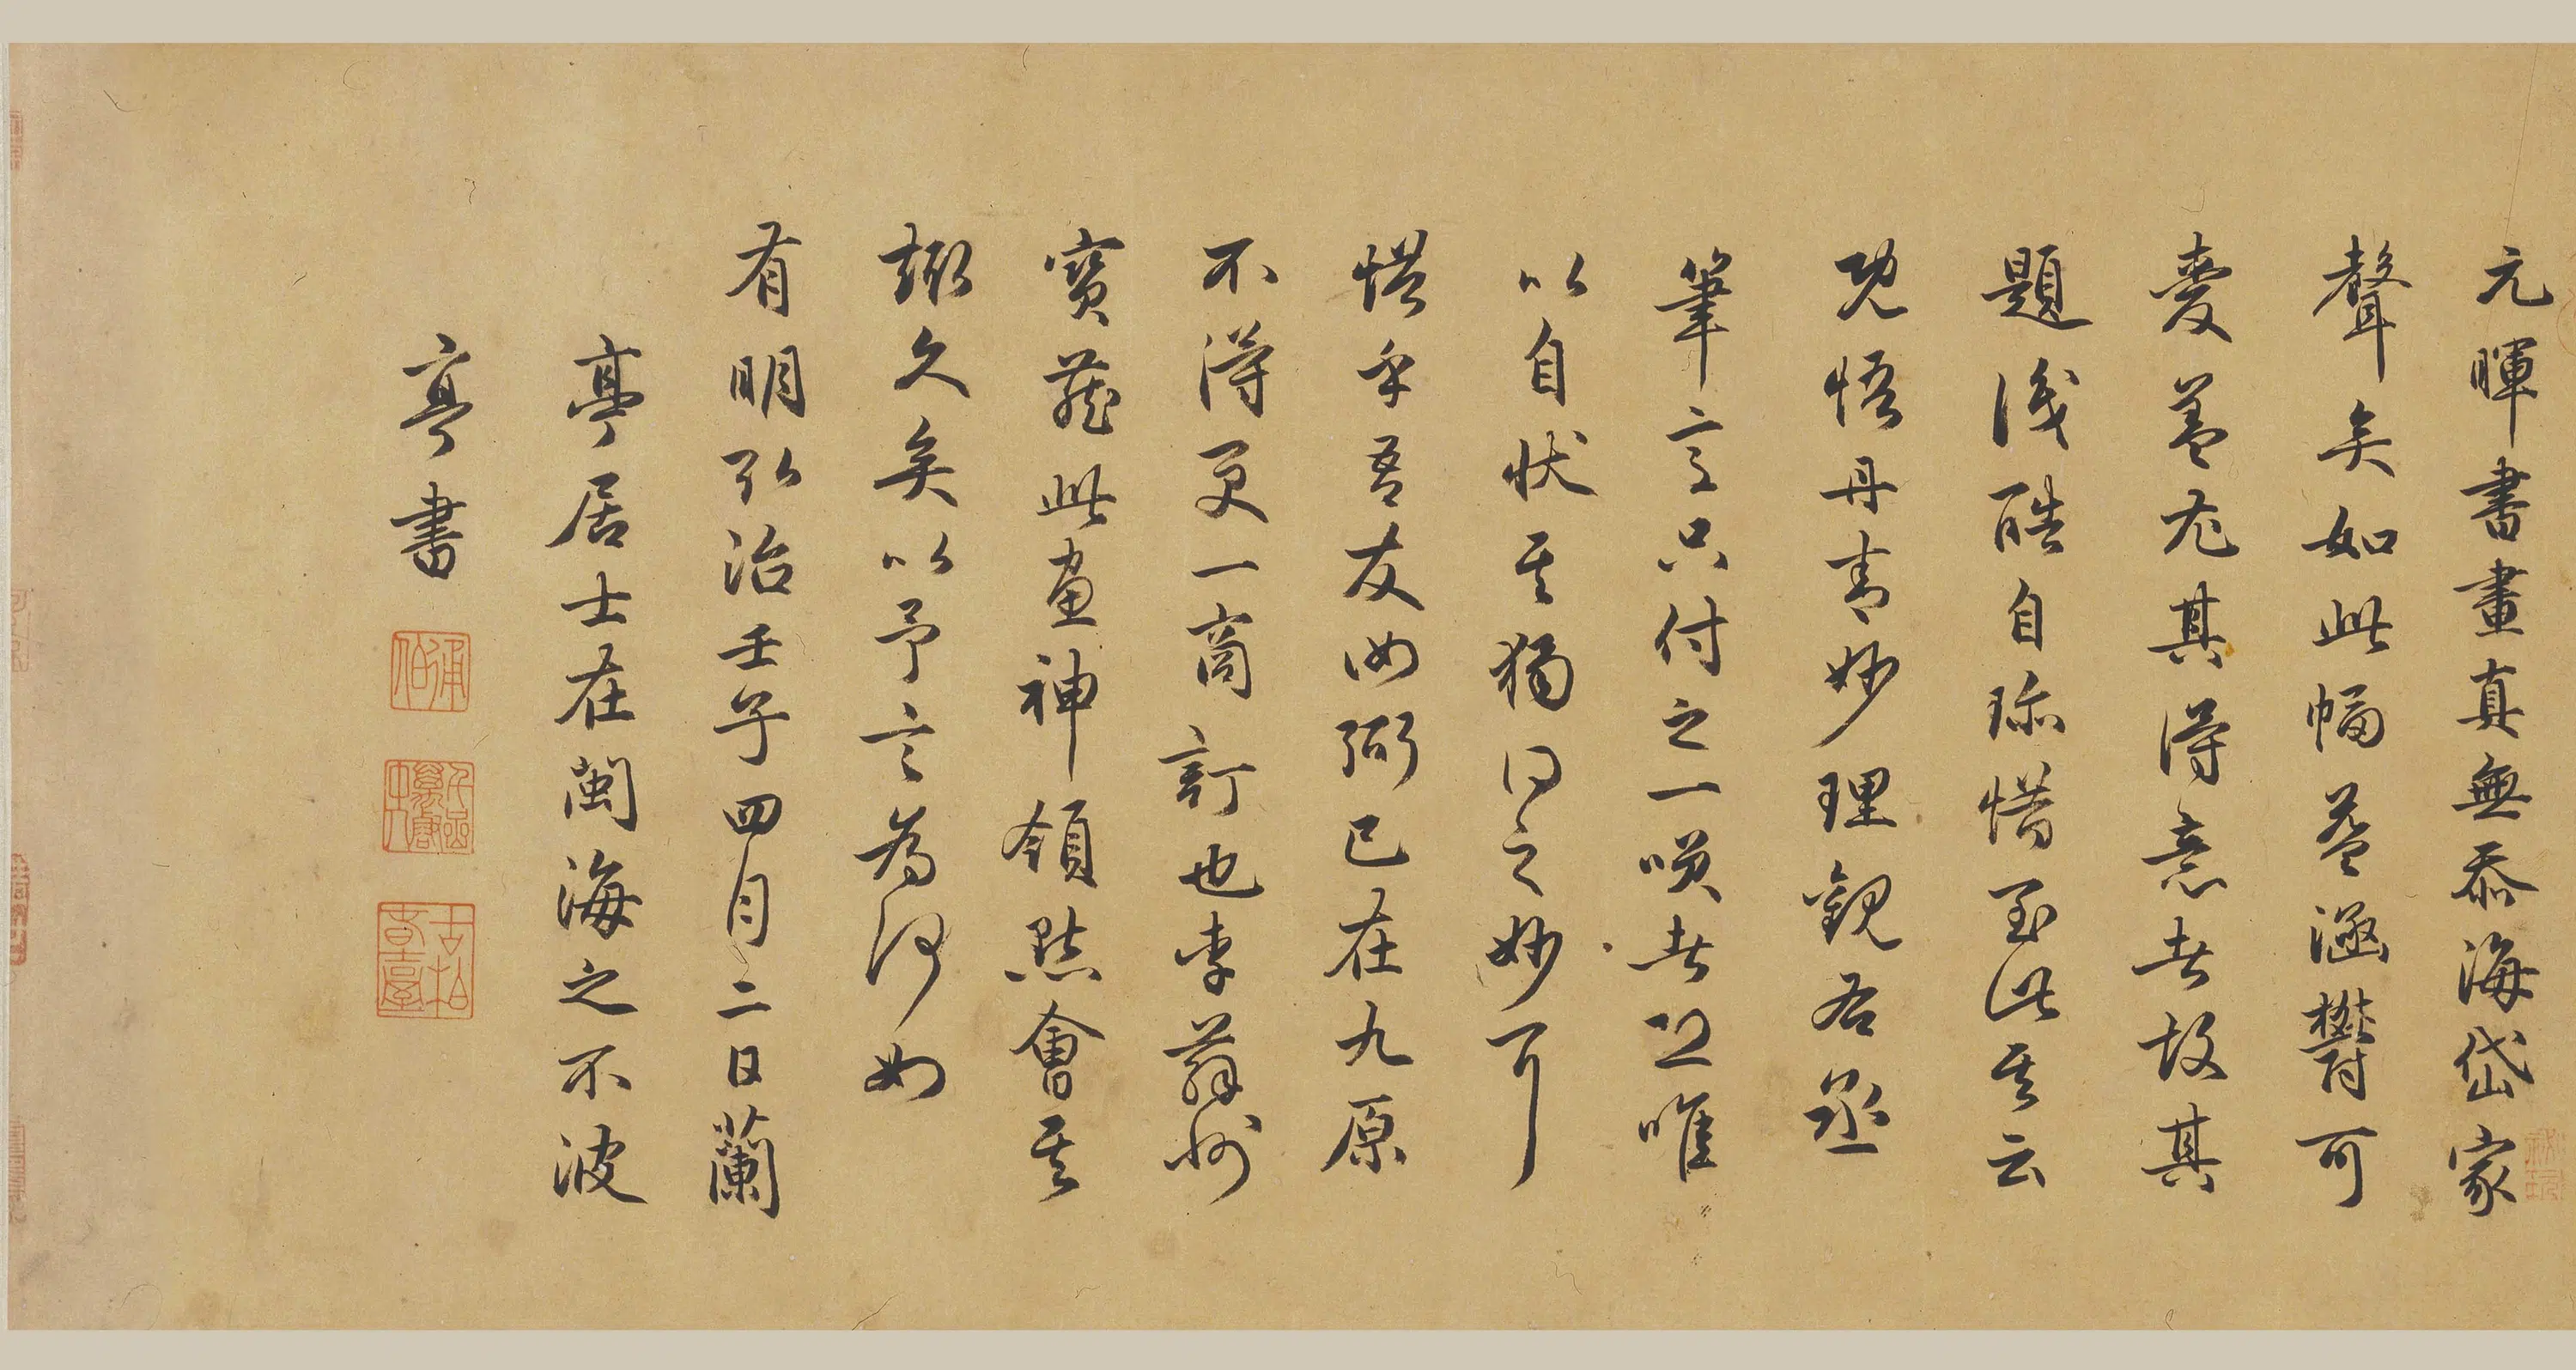 元暉書畫真無忝海岱家
聲矣如此幅蓋滃鬱可
愛蓋尤其得意者故其
題後酷自珍惜至此其云
既悟丹青妙理觀者丞
筆意只付之一嘆者正唯
以自狀其獨得之妙耳
惜乎吾友汝弼已在九原
不得更一商訂也李蘇州
寶藏此畫神領點會其
趣久矣以予言為何如
有明弘治壬子四月二日蘭
亭居士在閩海之不波
亭書